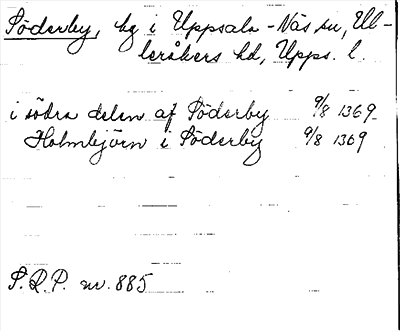 Söderby, by i Uppsala-Näs sn, Ul-
leråkers hd, Upps. l.
i södra delen af Söderby 9/8 1369
Holmbjörn i Söderby 9/8 1369
S.R.P. nr. 885